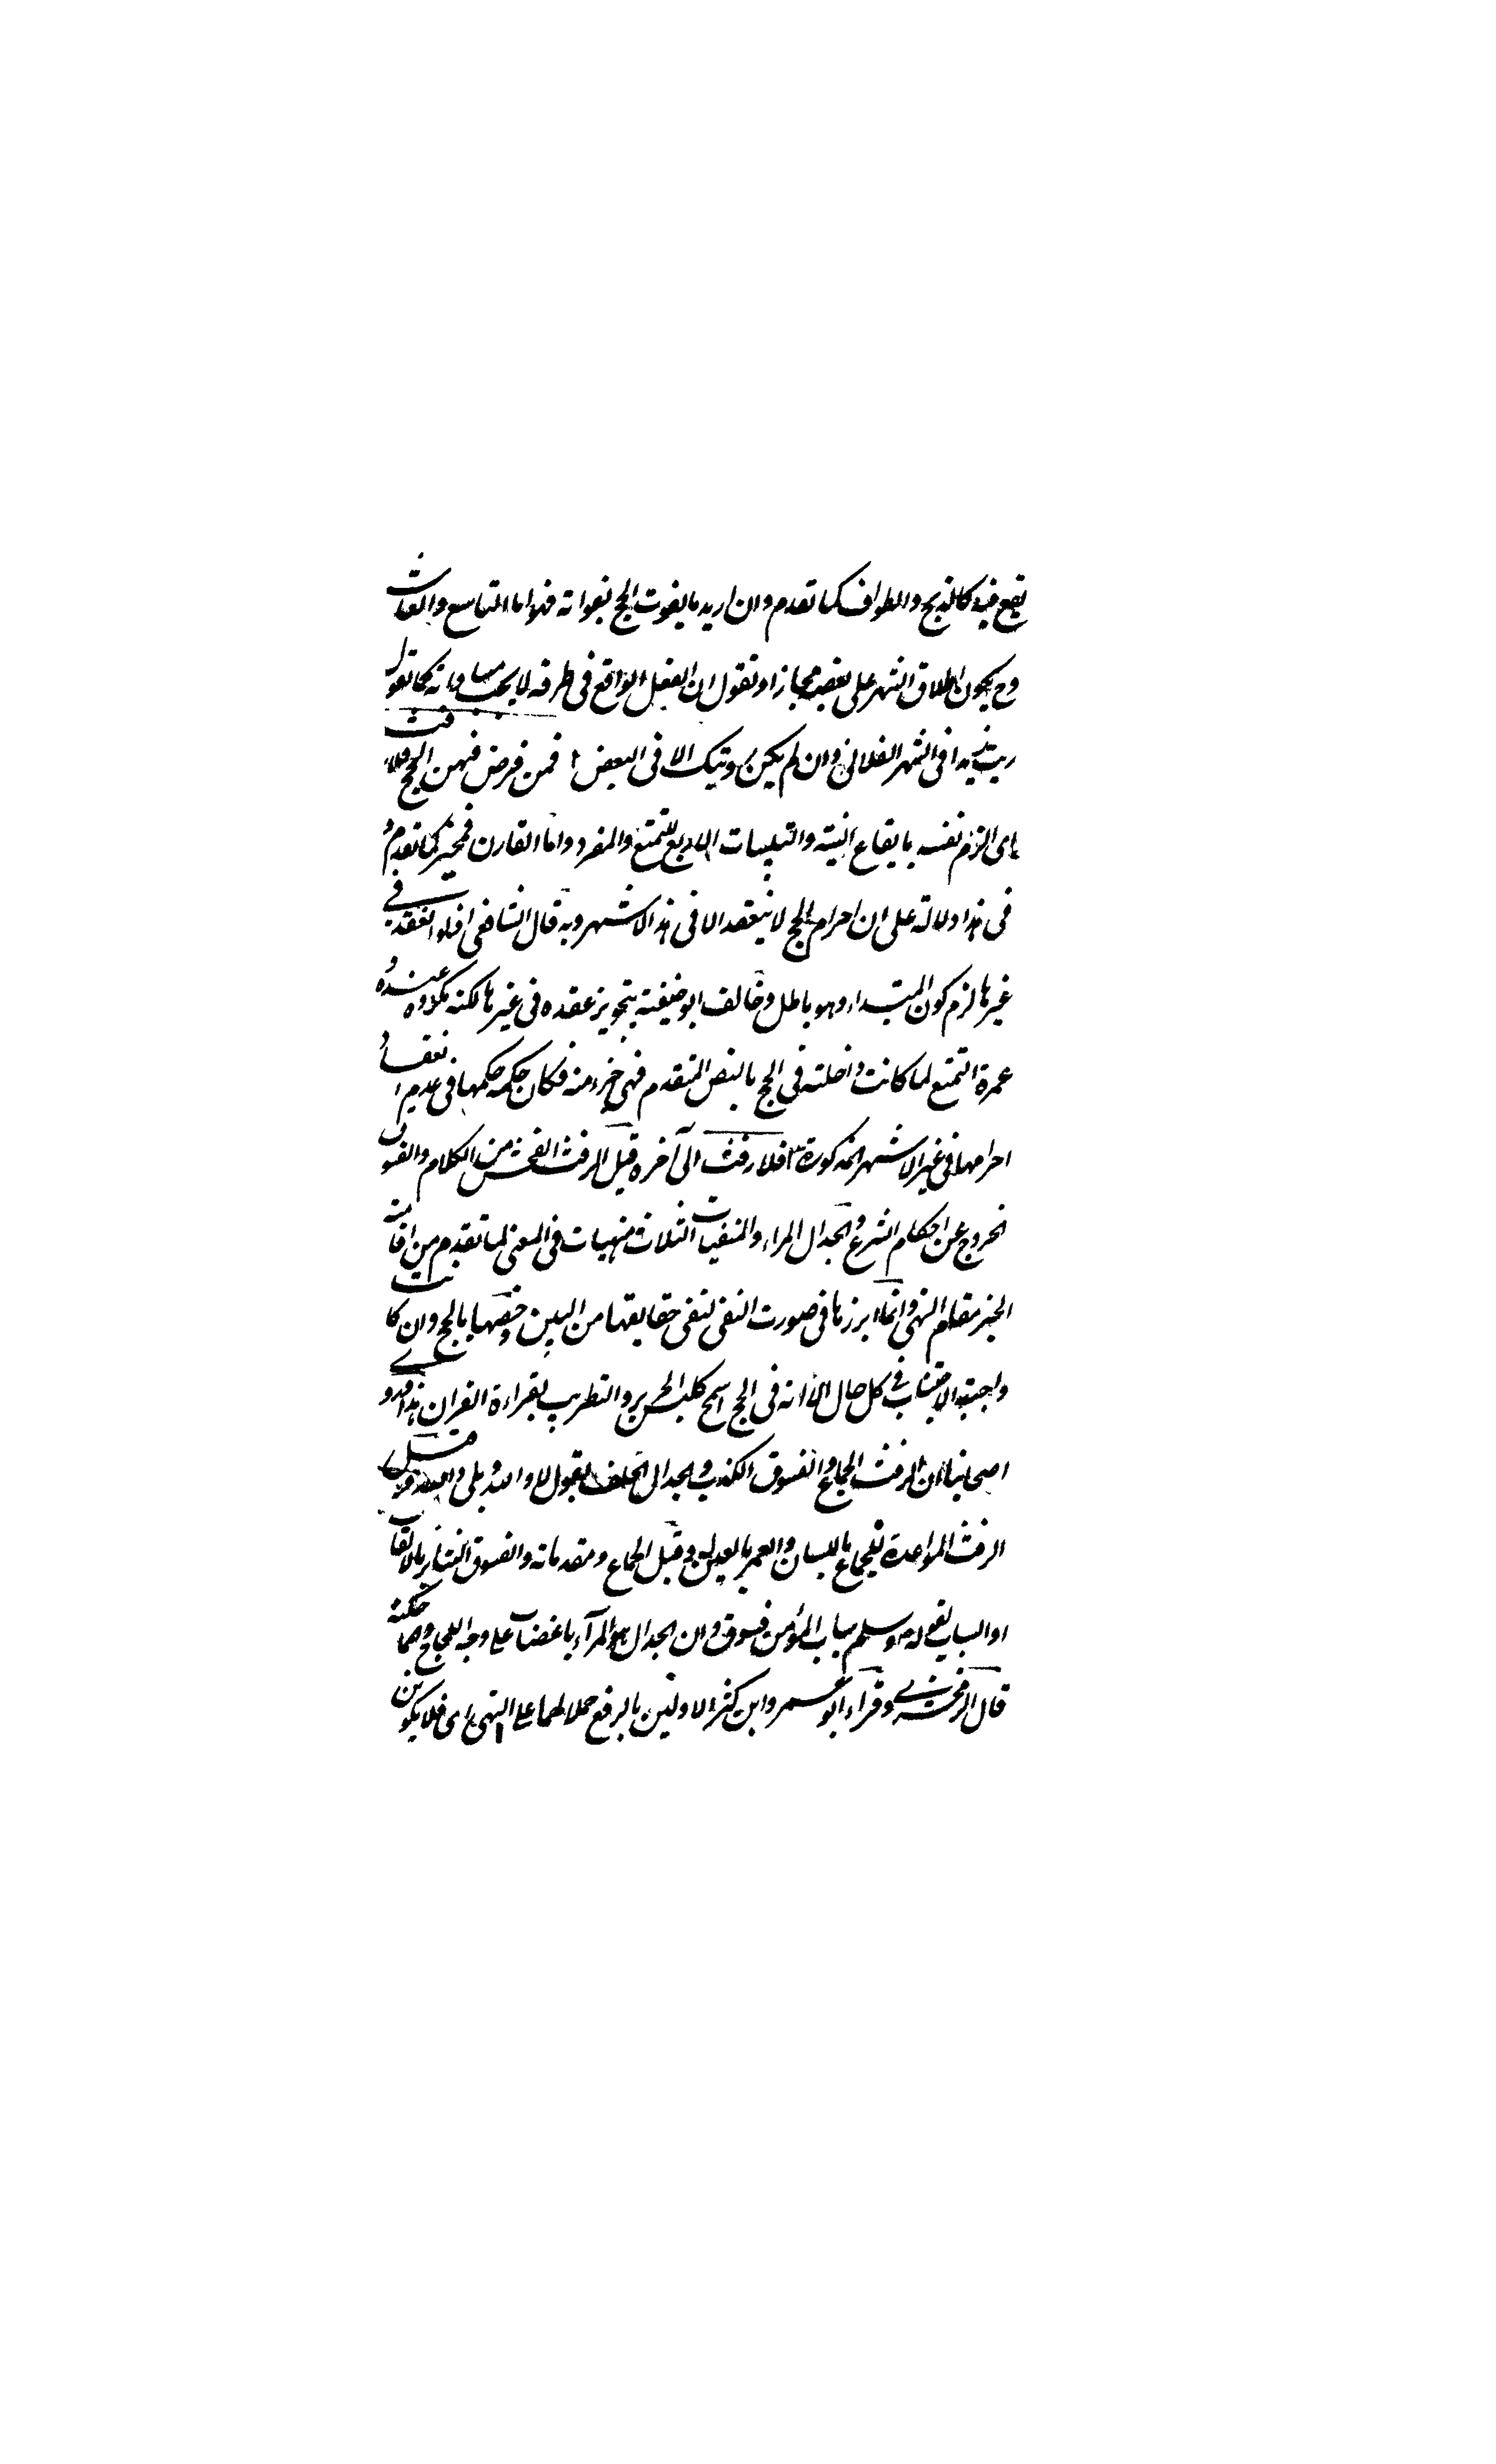 يقع فيه كالذبح والطواف كما تقدم وان اريد ما يفوت الحج بفواته فهو اما التاسع والعاشر
وح يكون اطلاق الشهر على بعضه مجازا ونقول ان الفعل الواقع في ظرفه لا يجب مساواته كما تقول
رايت زيدا في الشهر الفلاني وان لم يكن رويتك الا في البعض ا فمن فرض فيهن الحج فلا رفث
اى الزم نفسه بايقاع النية والتلبيات الاربع للمتمتع والمفرد واما القارن فمخير كما تقدم و
في هذا دلالة على ان احرام الحج لا ينعقد الا في هذا الاشهر وبه قال الشافعي اذ لو انعقد في
غيرها لزم كون المبتداء وهو باطل وخالف ابو حنيفة بتجويز عقده في غيرها لكنه مكروه عنده و
عمرة التمتع لما كانت داخلته في الحج بالنص المتقدم فهي جزء منه فكان حكمه حكمها في عدم انعقاد
احرامها في غير الاشهر المذكورة ٣ فلا رفث الى آخره قيل الرفث الفحش من الكلام والفسوق
الخروج عن احكام الشرع والجدال المراء والمنفيات الثلاث منهيات في المعنى لما تقدم من اقامة
الخبر مقام النهي وانما ابرزها في صورت النفى لنفى حقايقها من البين وخصها بالحج وان كانت
واجبة الاجتناب في كل حال الا انه في الحج اسمج كلبس الحرير والتطريب بقراءة القران هذا وروى
اصحابنا ان الرفث الجماع والفسوق الكذب والجدال الحلف بقول لا والله وبلى والله وقيل
الرفث المواعدة للجماع باللسان والغمز بالعين وقيل الجماع ومقدماته والفسوق التنابز بالالقاب
او السباب لقوله ص وسلم سباب المؤمن فسوق وان الجدال هو المرآء باغضاب على وجه اللجاج والمماحكة
قال الزمخشرى وقراء ابو عمرو وابن كثير الاولين بالرفع حملا لهما على النهى اى فلا يكونن